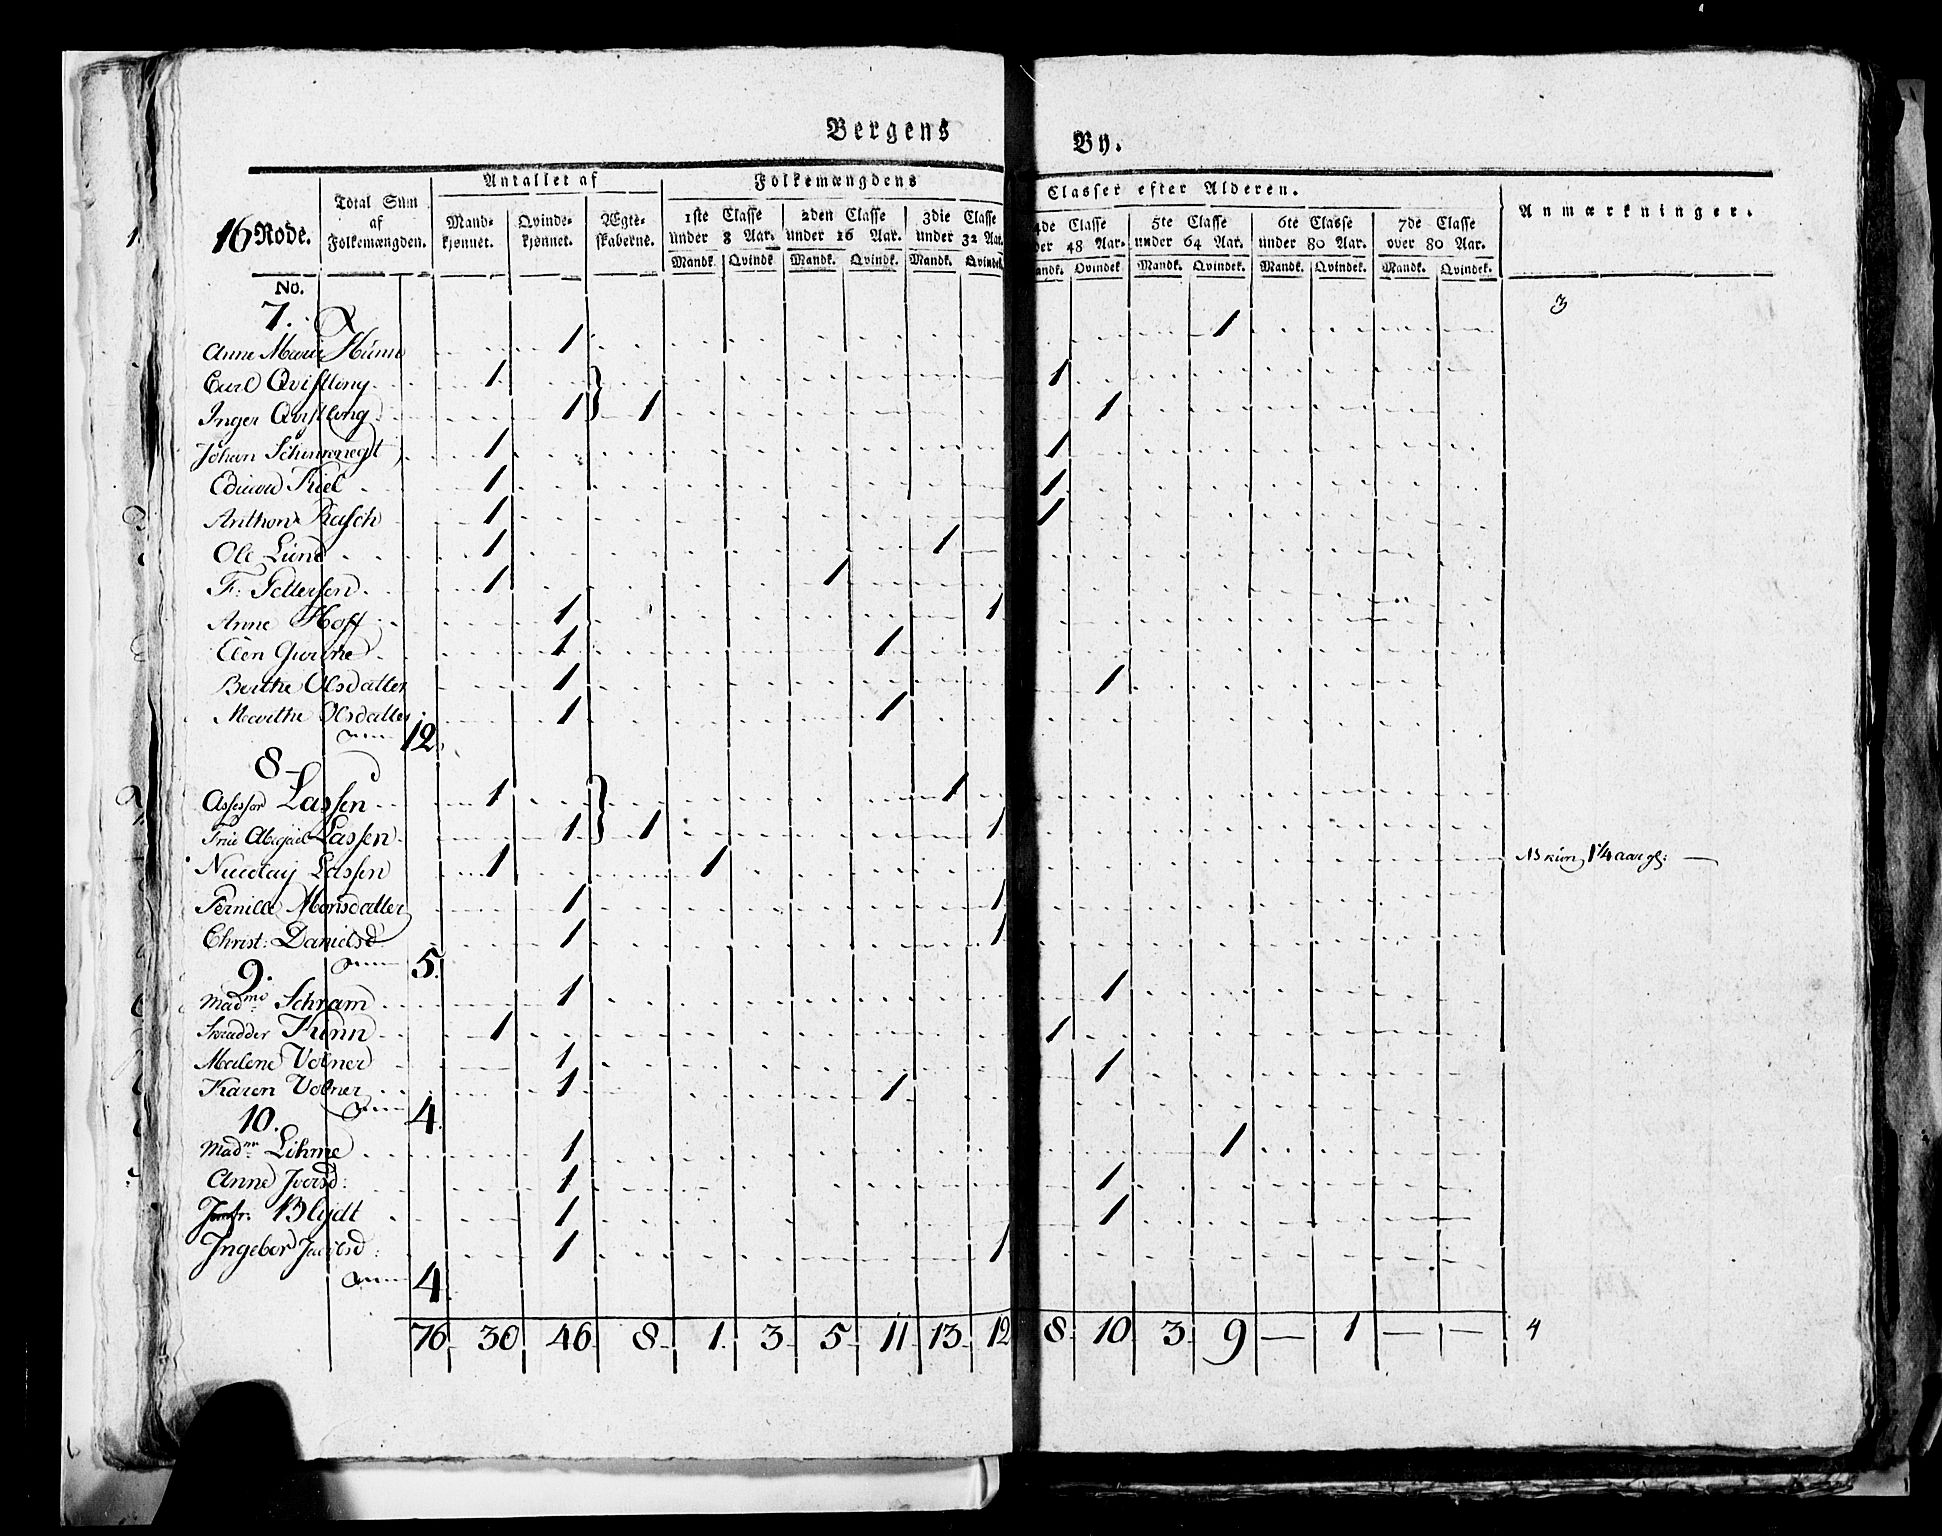 Bergens By.
16 Rode.
Total Sum af Folkemængden.
Antallet af
Mandkjønnet.
Qvindekjønnet.
Ægteskaberne.
Folkemængdens Classer efter Alderen.
1ste Classe under 8 Aar.
2den Classe under 16 Aar.
3die Classe under 32 Aar.
4de Classe 48 Aar.
5te Classe under 64 Aar.
6te Classe under 80 Aar.
7de Classe over 80 Aar.
Anmærkninger.
Mandk. Qvindk. Mandk. Qvindk. Mandk. Qvindek. Mandk. Qvindek. Mandk. Qvindek. Mandk. Qvindek. Mandk. Qvindek.
No.
7.
3
Anne Marie 1 1
Carl Qvistling 1 1
Inger Qvistling 1 1 1
Johan 1 1
Edvard Kiel 1 1
Anthon Rasch 1 1
Ole Lund 1 1
F. Pettersen 1 1
Anne Hoff 1 1
Elen 1 1
Berthe Olsdatter 1 1
Marthe Olsdatter 1 1
12.
8
Assessor Lassen 1 1
Frue Abigael Lassen 1 1 1
Nicolay Lassen 1 1 NB kun 1¼ aar gl:
Pernille Monsdatter 1 1
Christ: Danielsd 1 1
5.
9.
Madme Schram 1 1
Skrædder Kunn 1 1
Malene Volner 1 1
Karen Volner 1 1
4.
10.
Madme Lihme 1 1
Anne Iversd: 1 1
Jomfr: Blydt 1 1
Ingebor 1 1
4.
76 30 46 8 1 3 5 11 13 12 8 10 3 9 — 1 — — 4